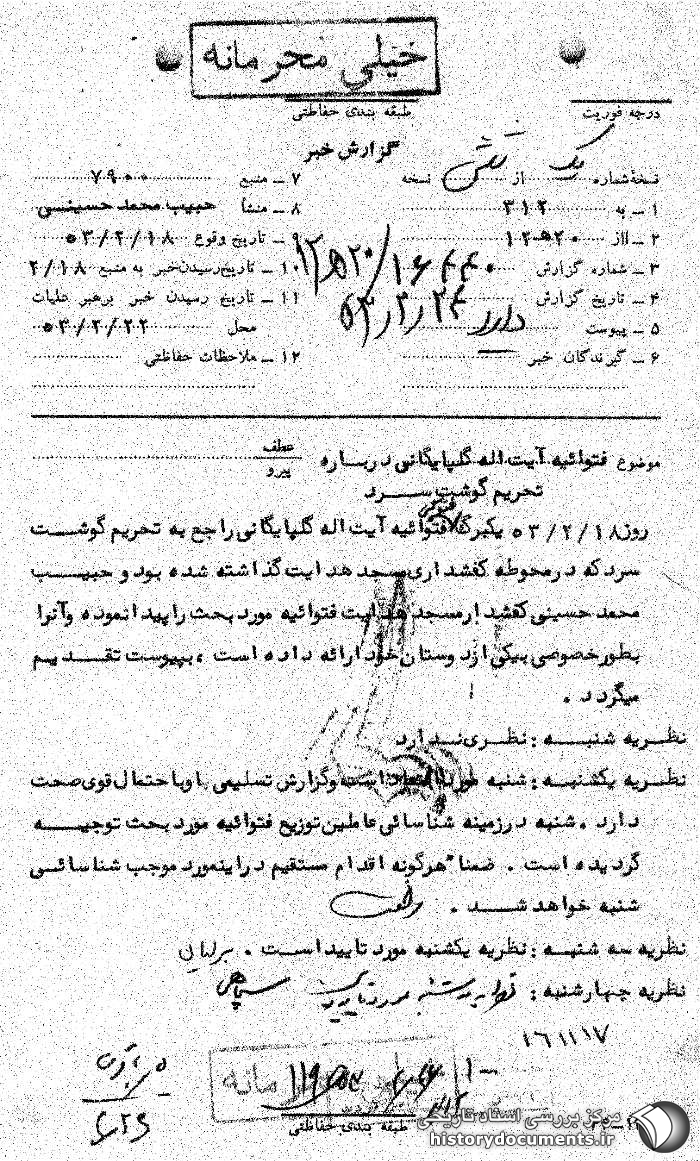 خیلی محرمانه
طبقه بندی حفاظتی
درجه فوریت
گزارش خبر
نسخهٔ شماره یک از شش نسخه
۱ ـ به ۳۱۲
۲ ـ از ۲۰ﻫ۱۲
۳ ـ شماره گزارش ۲۰ﻫ۱۲/۱۶۴۴۰
۴ ـ تاریخ گزارش ۵۳/۲/۲۴
۵ ـ پیوست دارد
۶ ـ گیرندگان خبر
۷ ـ منبع ۷۹۰۰
۸ ـ منشأ حبیب محمد حسینی
۹ ـ تاریخ وقوع ۵۳/۲/۱۸
۱۰ ـ تاریخ رسیدن خبر به منبع ۲/۱۸
۱۱ ـ تاریخ رسیدن خبر برهبر عملیات
محل ۵۳/۲/۲۲
۱۲ ـ ملاحظات حفاظتی
موضوع فتوائیه آیت اله گلپایگانی درباره
تحریم گوشت سرد
عطف
پیرو
روز ۵۳/۲/۱۸ یکبرگ فتوائیه آیت اله گلپایگانی راجع به تحریم گوشت
سرد که در محوطه کفشداری مسجد هدایت گذاشته شده بود و حبیب
محمد حسینی کفشدار مسجد هدایت فتوائیه مورد بحث را پیدا نموده و آنرا
بطور خصوصی بیکی از دوستان خود ارائه داده است ، بپیوست تقدیم
میگردد .
نظریه شنبه : نظری ندارد
نظریه یکشنبه : شنبه مورد اعتماد است و گزارش تسلیمی باو با حتمال قوی صحت
دارد . شنبه در زمینه شناسائی عاملین توزیع فتوائیه مورد بحث توجیه
گردیده است . ضمنا" هرگونه اقدام مستقیم در اینمورد موجب شناسائی
شنبه خواهد شد .
نظریه سه شنبه : نظریه یکشنبه مورد تایید است .
نظریه چهارشنبه : نظریه سه شنبه مورد تایید است
۱۶۱۱۱۷
طبقه بندی حفاظتی
مرکز بررسی اسناد تاریخی
historydocuments.ir